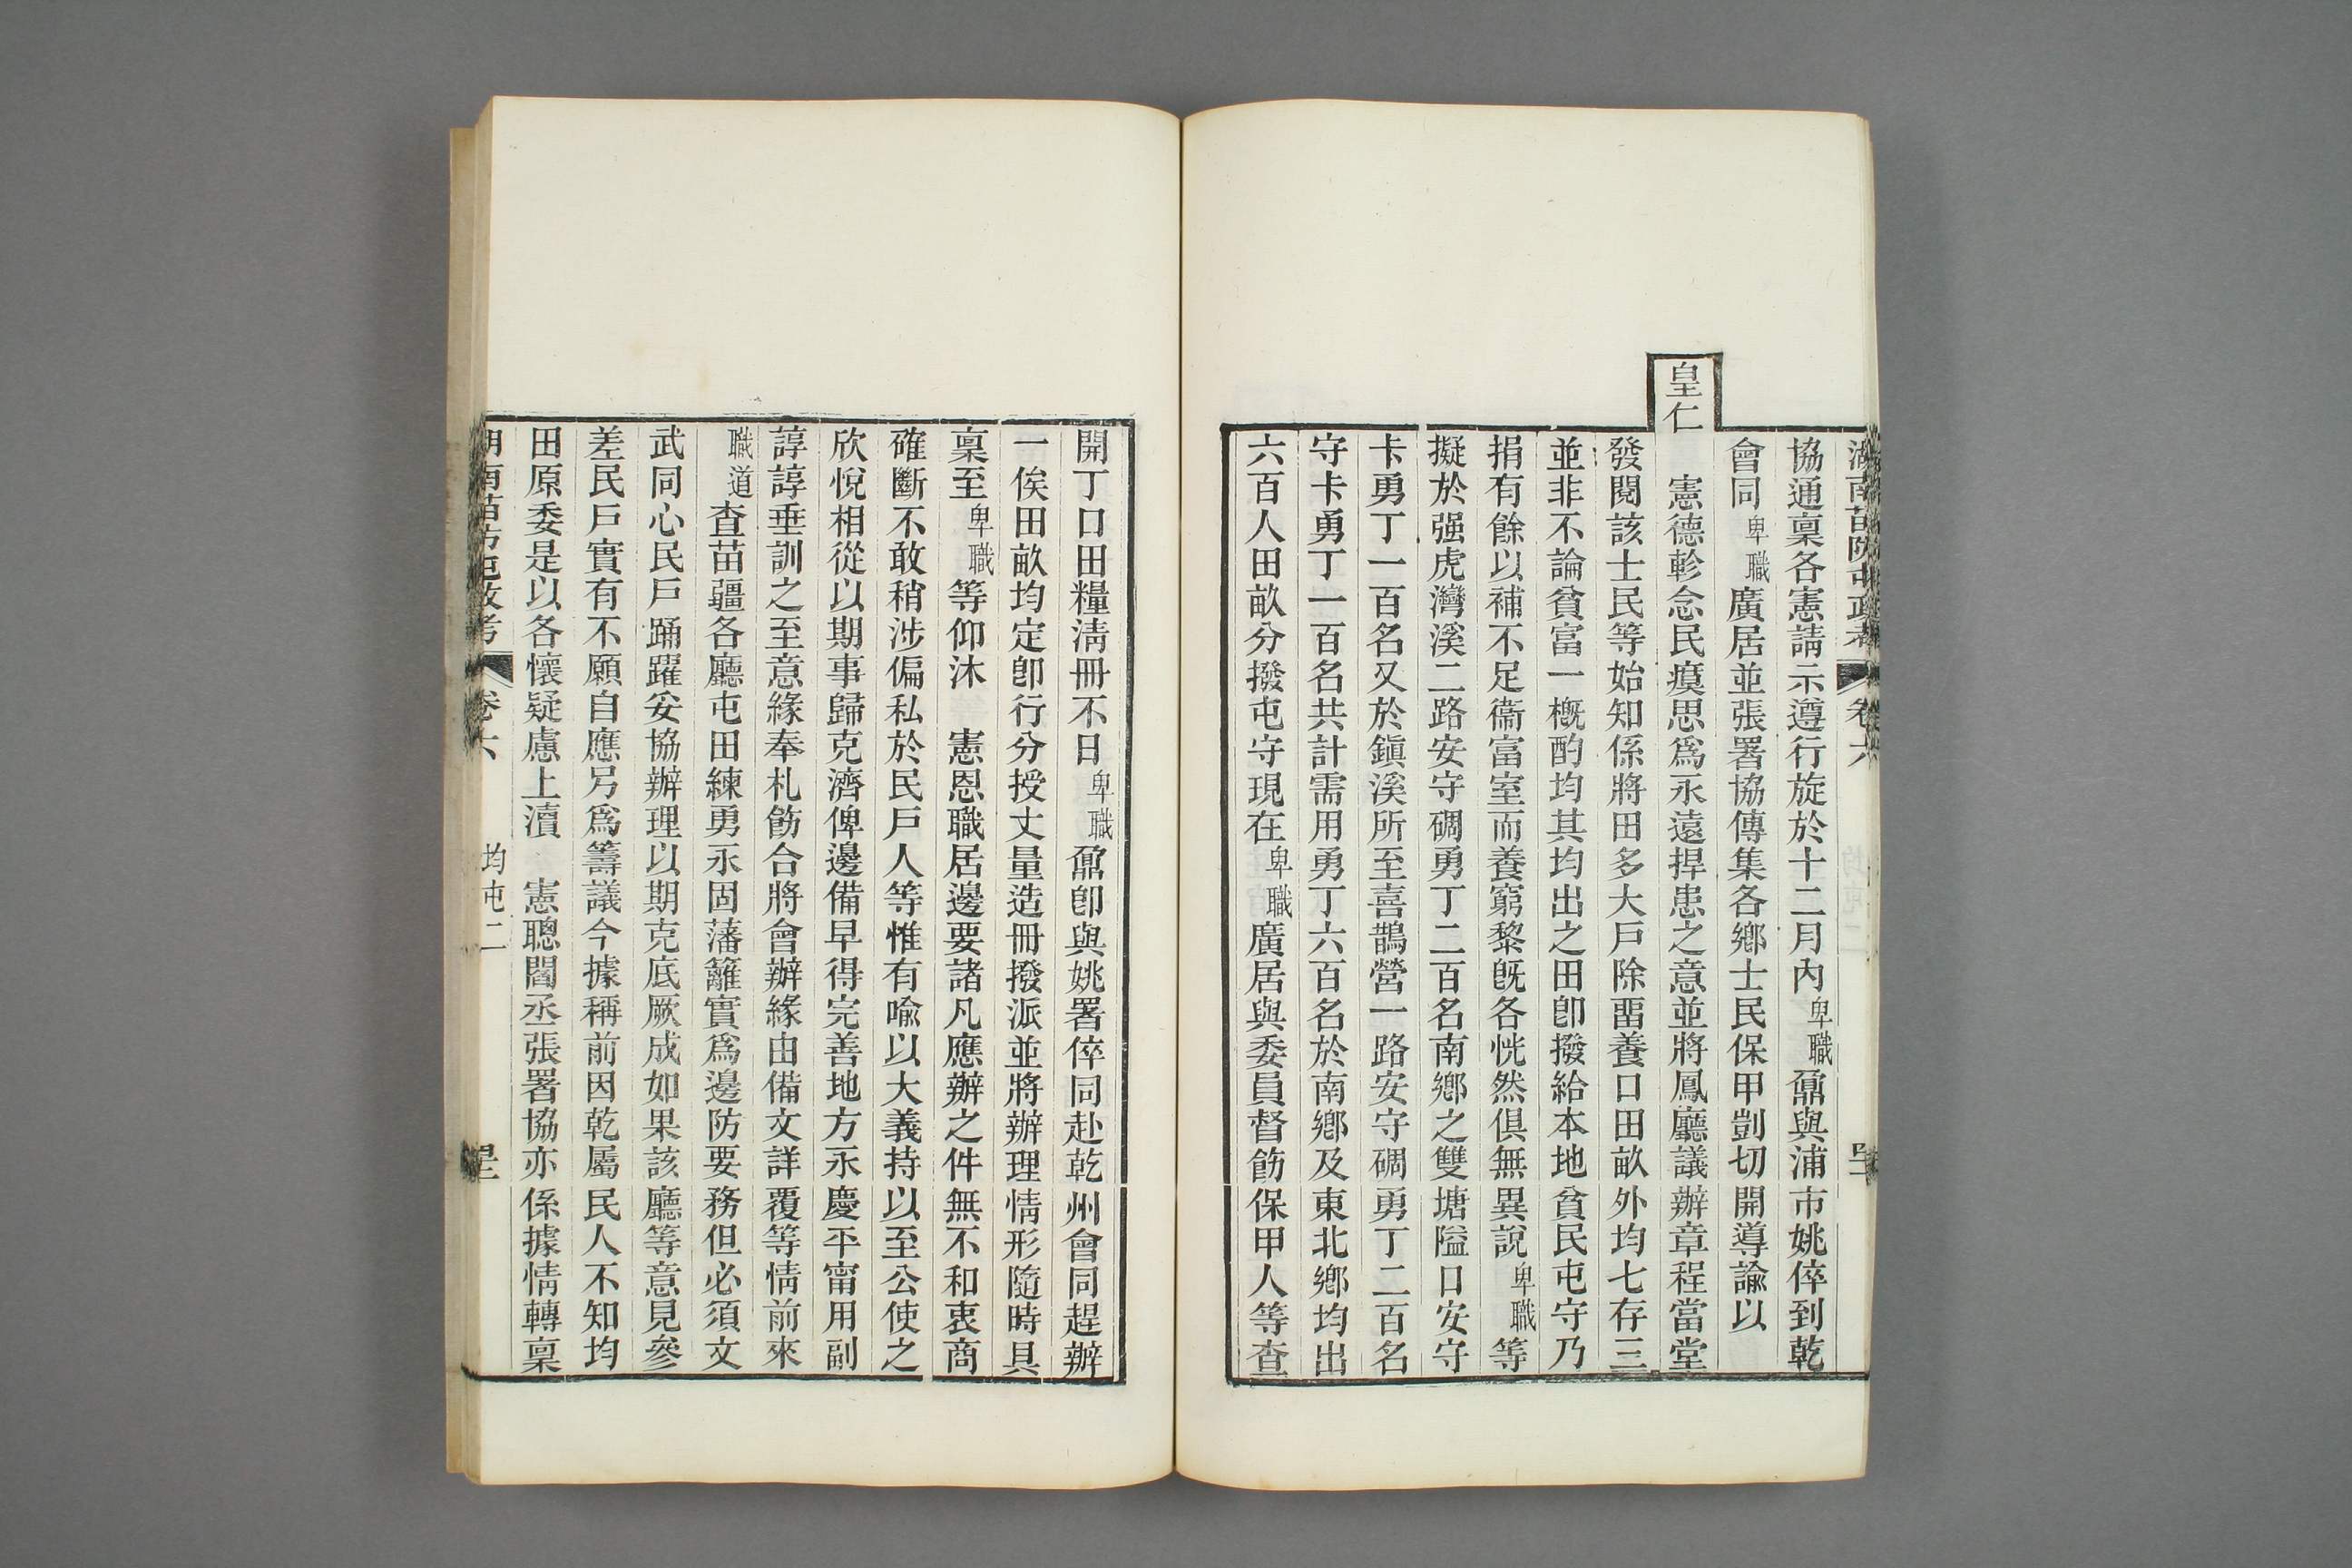 湖南苗防屯政考 卷六
協通稟各憲請示遵行旋於十二月內卑職鼐與浦市姚倅到乾
會同卑職廣居並張署協傳集各鄉士民保甲剴切開導諭以
皇仁憲德軫念民瘼思爲永遠捍患之意並將鳳廳議辦章程當堂
發閱該士民等始知係將田多大戶除畱養口田畝外均七存三
並非不論貧富一槪酌均其均出之田卽撥給本地貧民屯守乃
捐有餘以補不足衞富室而養窮黎旣各恍然俱無異說卑職等
擬於强虎灣溪二路安守碉勇丁二百名南鄉之雙塘隘口安守
卡勇丁一百名又於鎭溪所至喜鵲營一路安守碉勇丁二百名
守卡勇丁一百名共計需用勇丁六百名於南鄉及東北鄉均出
六百人田畝分撥屯守現在卑職廣居與委員督飭保甲人等查
開丁口田糧淸冊不日卑職鼐卽與姚署倅同赴乾州會同趕辦
一俟田畝均定卽行分授丈量造冊撥派並將辦理情形隨時具
稟至卑職等仰沐憲恩職居邊要諸凡應辦之件無不和衷商
確斷不敢稍涉偏私於民戶人等惟有喩以大義持以至公使之
欣悅相從以期事歸克濟俾邊備早得完善地方永慶平甯用副
諄諄垂訓之至意緣奉札飭合將會辦緣由備文詳覆等情前來
職道查苗疆各廳屯田練勇永固藩籬實爲邊防要務但必須文
武同心民戶踊躍妥協辦理以期克底厥成如果該廳等意見參
差民戶實有不願自應另爲籌議今據稱前因乾屬民人不知均
田原委是以各懷疑慮上瀆憲聰閻丞張署協亦係據情轉稟
湖南苗防屯政考 卷六 均屯二